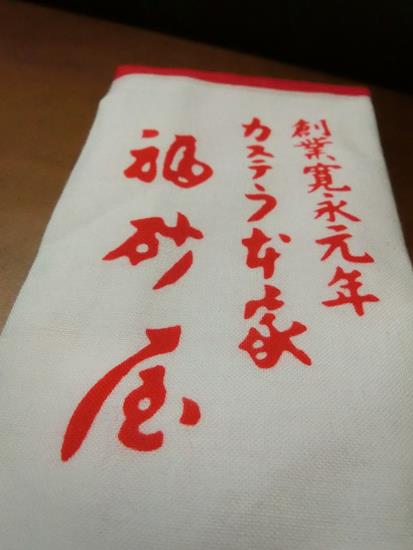 創業寛永元年
カステラ本家
福砂屋